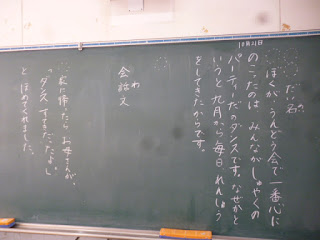 10月21日
だい名
ぼくが、うんどう会で一番心に
のこったのは、みんながしゅやくの
パーティーだのダンスです。なぜかと
いうと、九月から毎日れんしゅう
をしてきたからです。
わ
会話文
家に帰ったら、お母さんが、
「ダンス、すごかったよ。」
と、ほめてくれました。